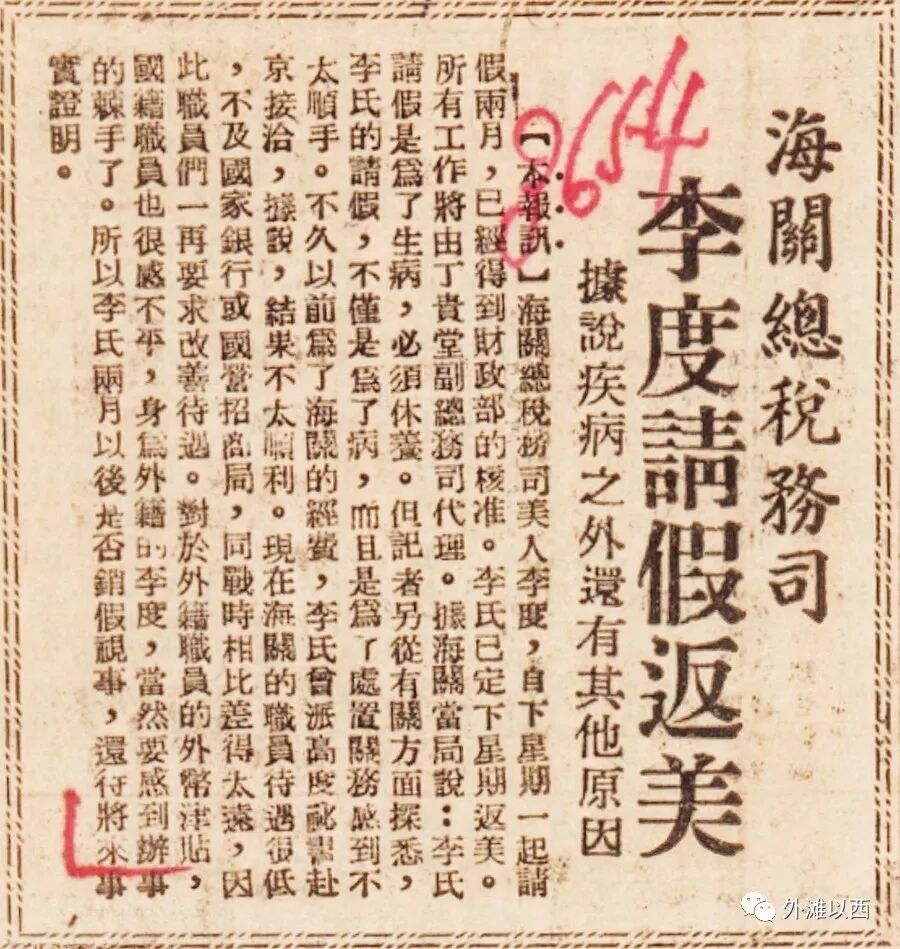 海關總稅務司
李度請假返美
據說疾病之外還有其他原因
8654
【本報訊】海關總稅務司美人李度，自下星期一起請
假兩月，已經得到財政部的核准。李氏已定下星期返美。
所有工作將由丁貴堂副總務司代理。據海關當局說：李氏
請假是爲了生病，必須休養。但記者另從有關方面探悉，
李氏的請假，不僅是爲了病，而且是爲了處置關務感到不
太順手。不久以前爲了海關的經費，李氏曾派高度祕書赴
京接洽，據說，結果不太順利。現在海關的職員待遇很低
，不及國家銀行或國營招商局，同戰時相比差得太遠，因
此職員們一再要求改善待遇。對於外籍職員的外幣津貼，
國籍職員也很感不平，身爲外籍的李度，當然要感到辦事
的棘手了。所以李氏兩月以後是否銷假視事，還待將來事
實證明。
外滩以西